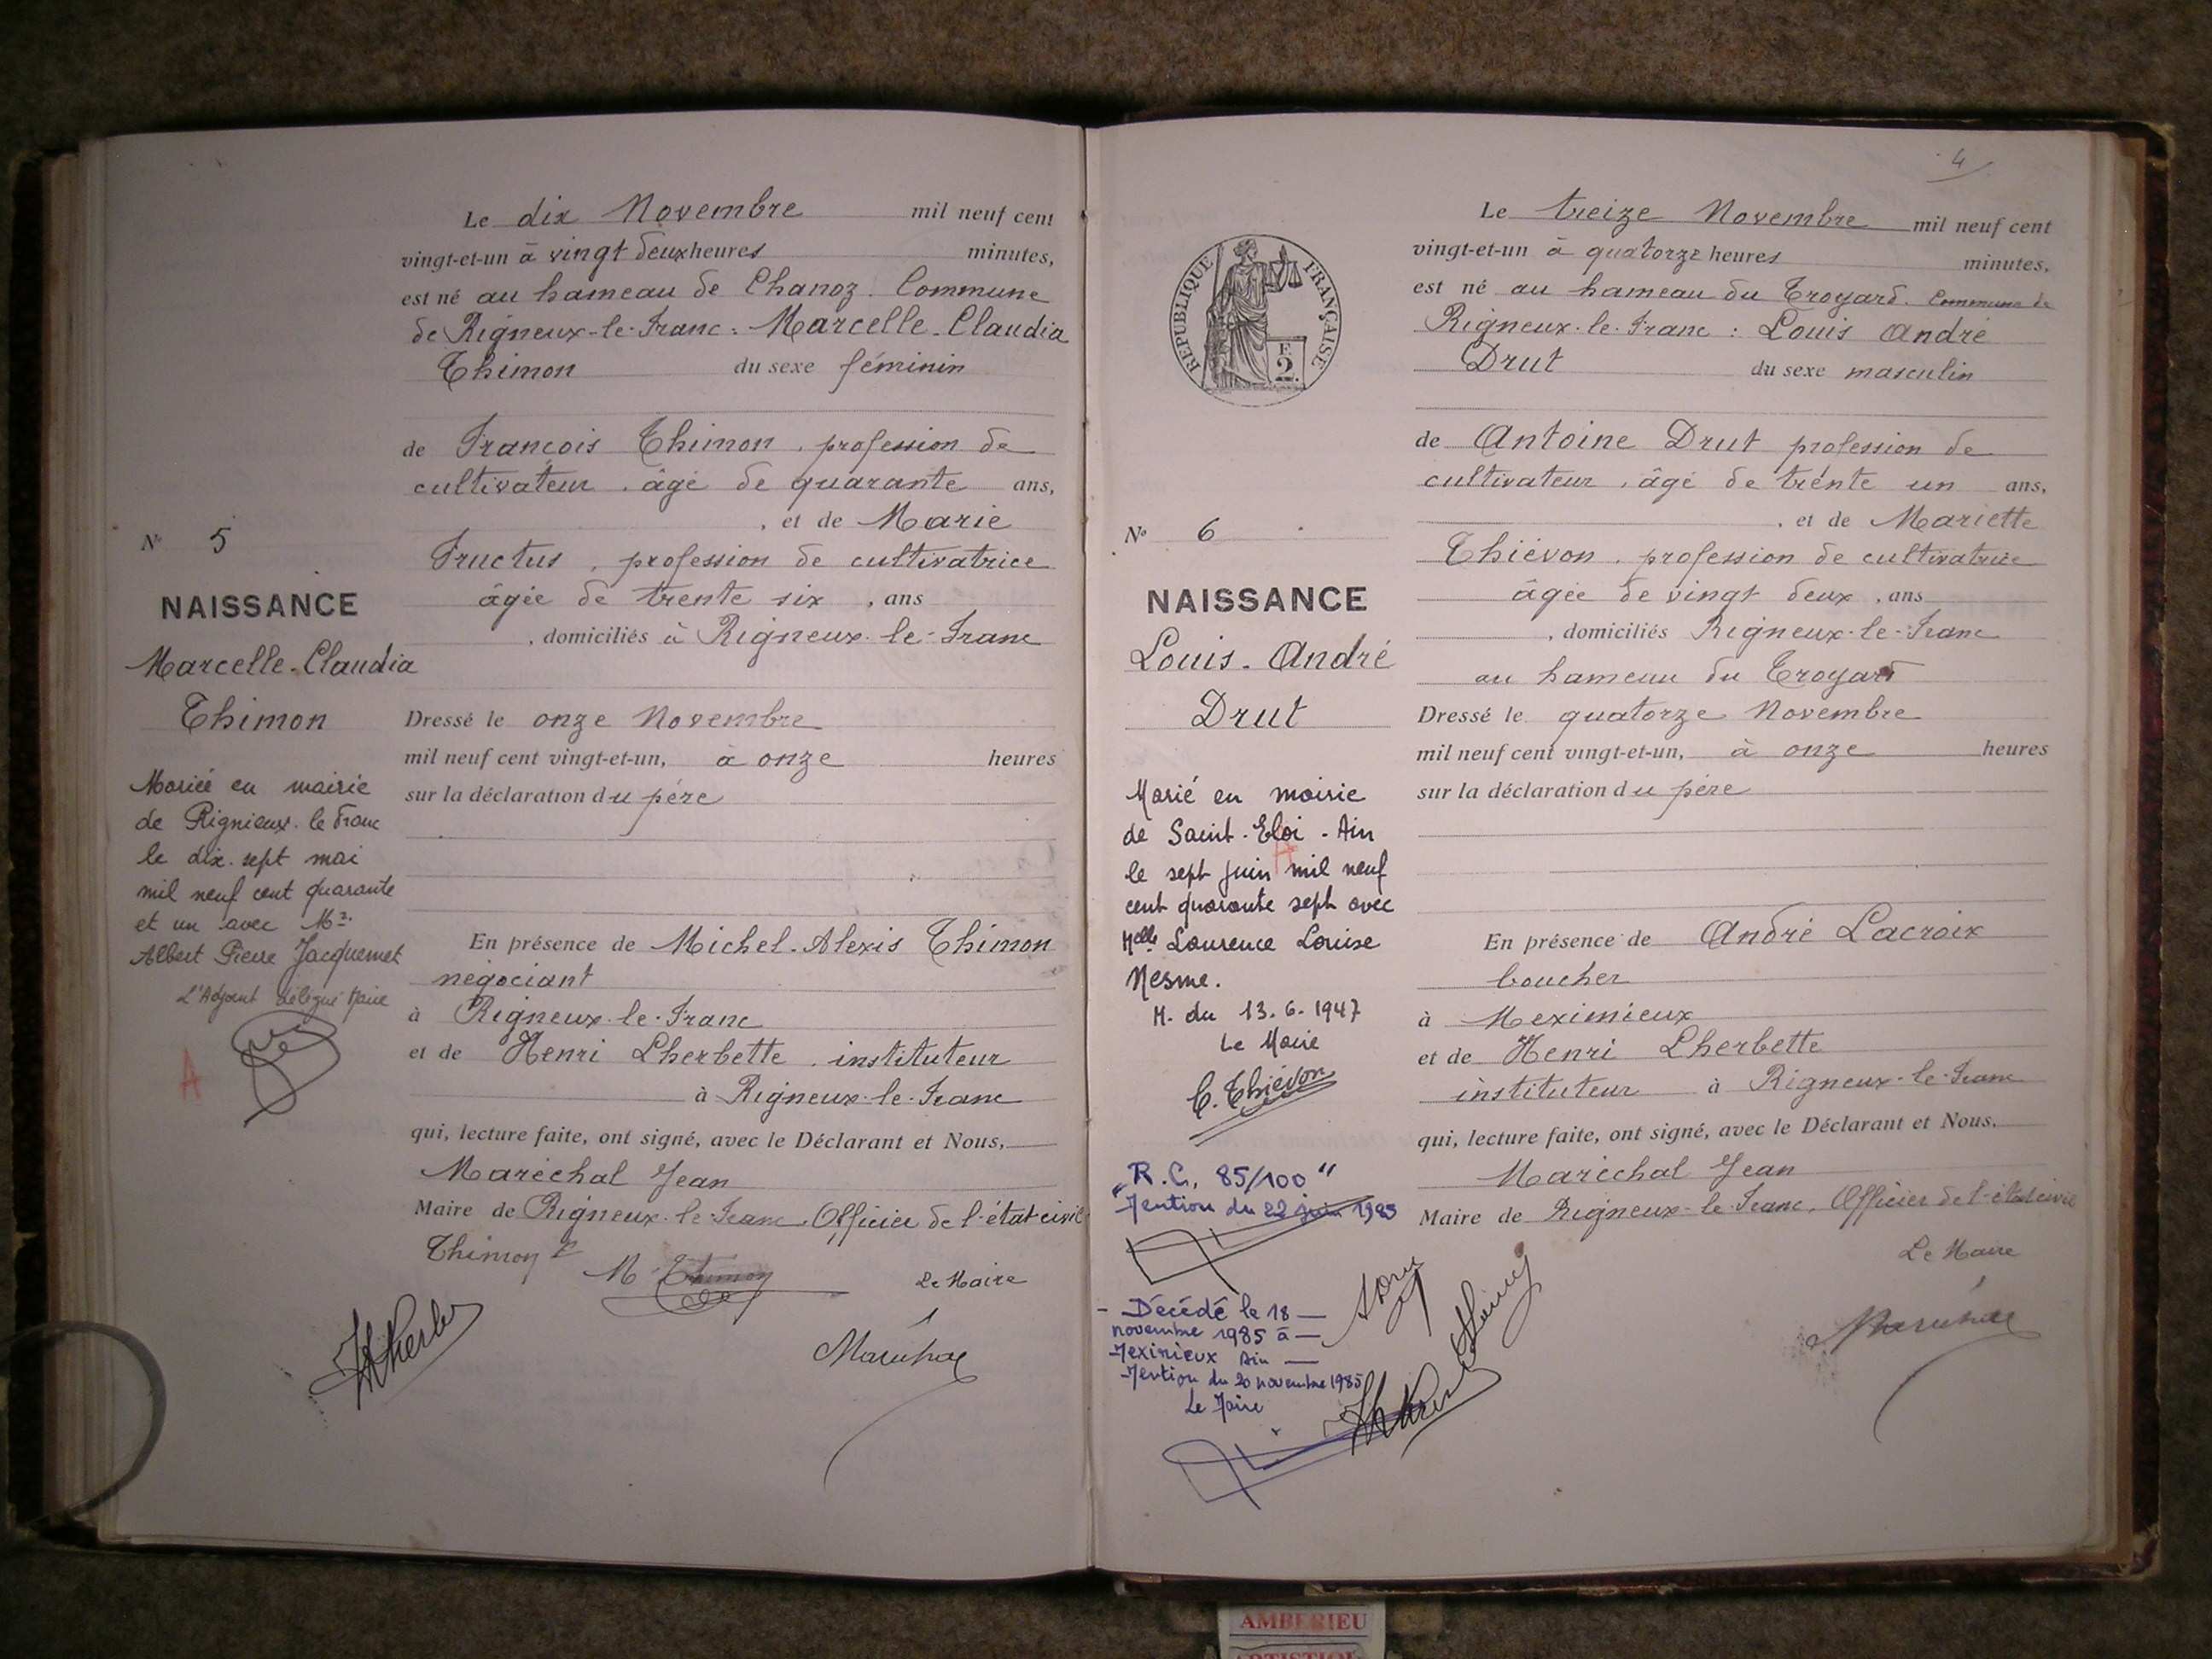 Le dix Novembre mil neuf cent
vingt-et-un à vingt deux heures minutes,
est né au hameau de Chanoz. Commune
de Rigneux-le-Franc : Marcelle-Claudia
Thimon du sexe féminin
de François Thimon, profession de
cultivateur, âgé de quarante ans,
, et de Marie
Fructus, profession de cultivatrice
âgée de trente six, ans
, domiciliés à Rigneux-le-Franc
Dressé le onze Novembre
mil neuf cent vingt-et-un, à onze heures
sur la déclaration du père
En présence de Michel-Alexis Thimon
négociant
à Rigneux-le-Franc
et de Henri Lherbette, instituteur
à Rigneux-le-Franc
qui, lecture faite, ont signé, avec le Déclarant et Nous,
Maréchal Jean
Maire de Rigneux-le-Franc, Officier de l'état civil
Thimon F
M Thimon
Le Maire
Maréchal
N° 5
NAISSANCE
Marcelle-Claudia
Thimon
Mariée en mairie
de Rignieux-le-Franc
le dix-sept mai
mil neuf cent quarante
et un avec Mr
Albert Pierre Jacquemet
L'Adjoint délégué Maire
A
4
Le treize Novembre mil neuf cent
vingt-et-un à quatorze heures minutes,
est né au hameau du Troyard. Commune de
Rigneux-le-Franc : Louis André
Drut du sexe masculin
de Antoine Drut profession de
cultivateur, âgé de trente un ans,
, et de Mariette
Thiévon, profession de cultivatrice
âgée de vingt deux, ans
, domiciliés Rigneux-le-Franc
au hameau du Troyard
Dressé le quatorze Novembre
mil neuf cent vingt-et-un, à onze heures
sur la déclaration du père
En présence de André Lacroix
boucher
à Meximieux
et de Henri Lherbette
instituteur à Rigneux-le-Franc
qui, lecture faite, ont signé, avec le Déclarant et Nous.
Maréchal Jean
Maire de Rigneux-le-Franc, Officier de l'état civil
Le Maire
Maréchal
REPUBLIQUE FRANÇAISE
F.
2.
N° 6
NAISSANCE
Louis-André
Drut
Marié en mairie
de Saint-Eloi - Ain
A
le sept juin mil neuf
cent quarante sept avec
Melle Laurence Louise
Nesme.
M. du 13.6.1947
Le Maire
C. Thiévon
"R.C. 85/100"
Mention du 22 juin 1985
- Décédé le 18 -
novembre 1985 à -
Meximieux Ain -
Mention du 20 novembre 1985
Le Maire
AMBERIEU